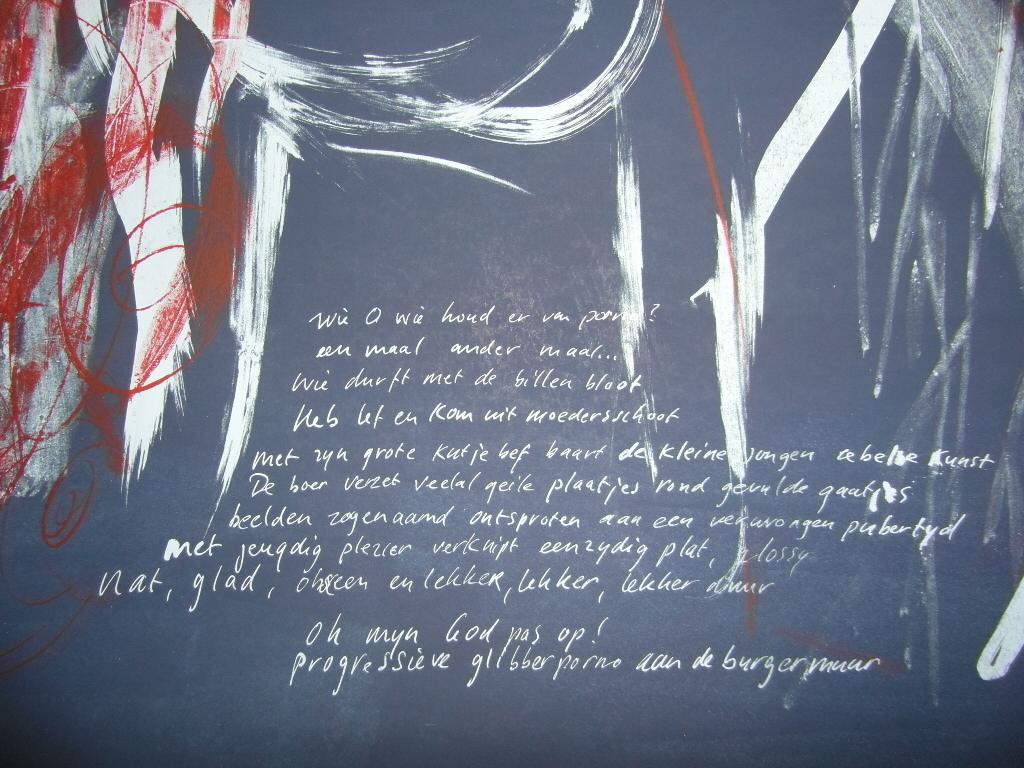 wie O wie houd er van porno?
een maal ander maal...
wie durft met de billen bloot
heb lef en kom uit moedersschoot
met zyn grote kutje bef baart de kleine jongen rebelse kunst
De boer verzet veelal geile plaatjes rond gevulde gaatjes
beelden zogenaamd ontsproten aan een verwrongen pubertyd
met jeugdig plezier verknipt eenzydig plat, glossy
nat, glad, obsceen en lekker, lekker, lekker duur
Oh myn God pas op!
progressieve glibberporno aan de burgermuur